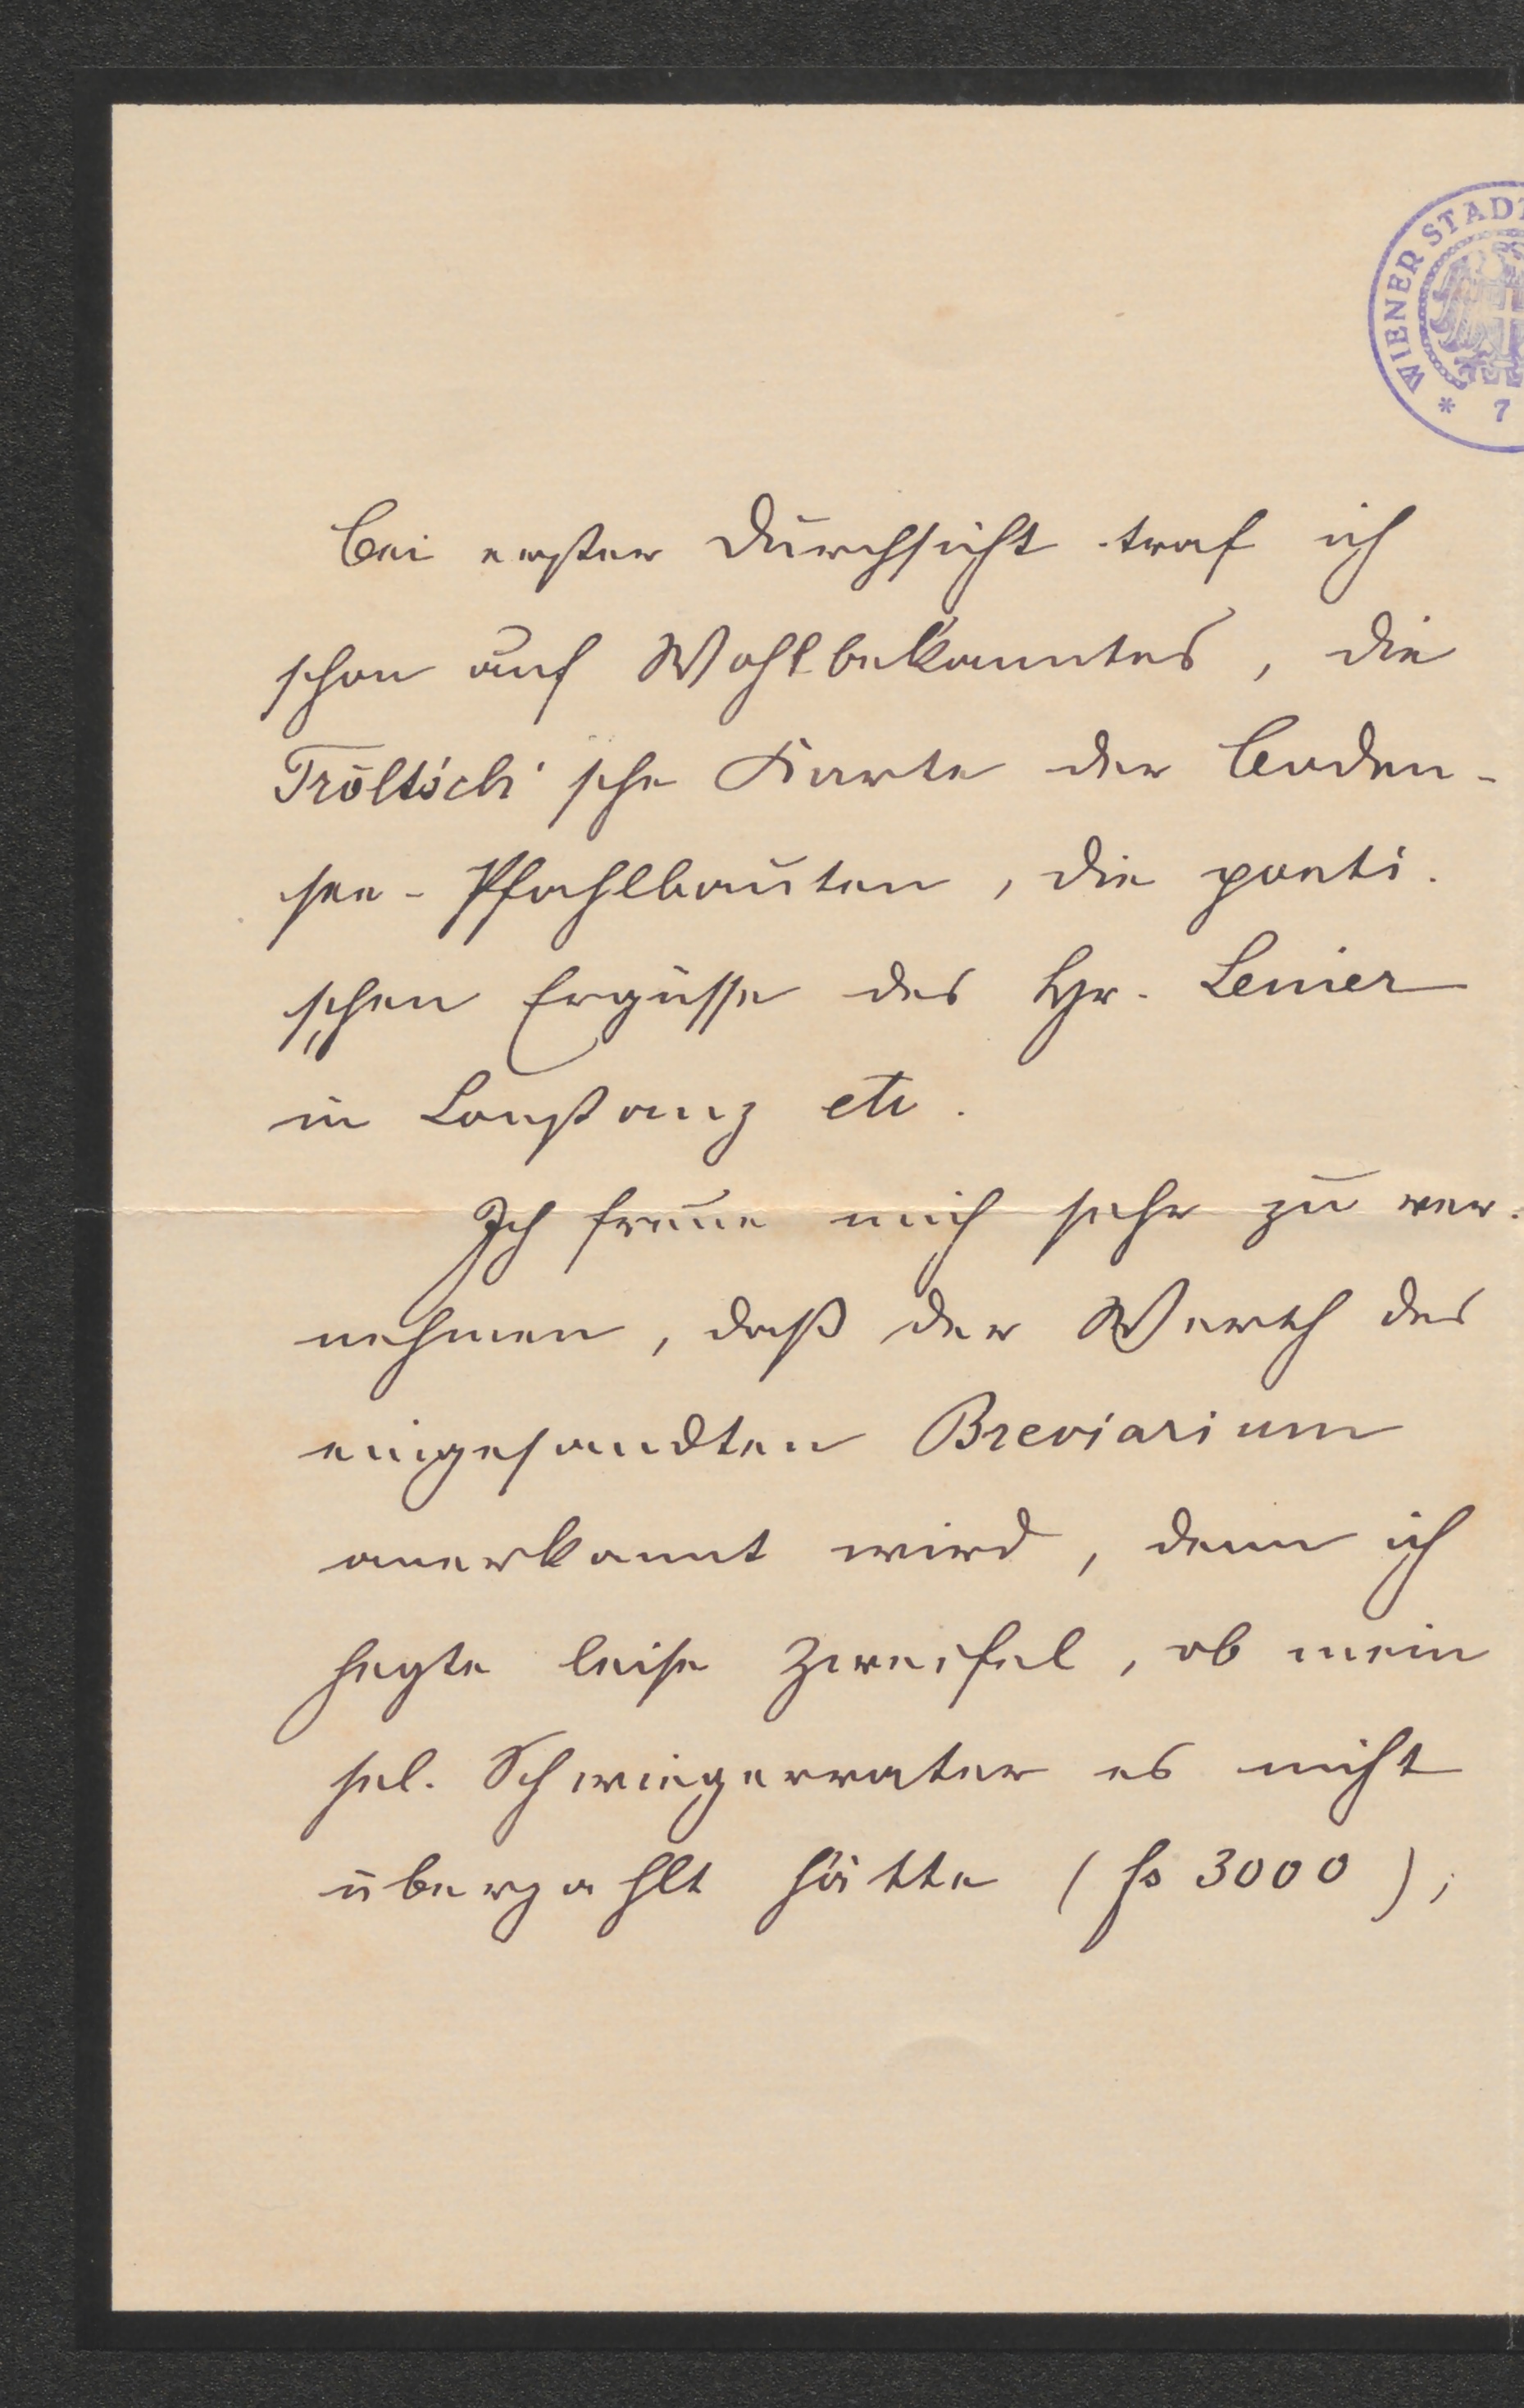 WIENER STADT
* 7
Bei erster Durchsicht traf ich
schon auf Wohlbekanntes, die
Tröltsch'sche Karte der Boden-
see-Pfahlbauten, die poeti-
schen Ergüsse des Hr. Leiner
in Constanz etc.
Ich freue mich sehr zu ver-
nehmen, daß der Werth des
eingesandten Breviarium
anerkannt wird, denn ich
hegte leise Zweifel, ob mein
sel. Schwiegervater es nicht
überzahlt hätte (fs 3000);